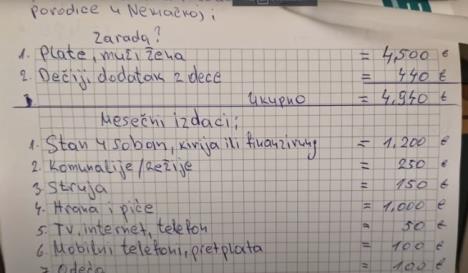 porodice u Nemačkoj;
Zarada?
1. Plate, muž i žena = 4,500 €
2. Dečiji dodatak 2 dece = 440 €
Ukupno = 4,940 €
Mesečni izdaci;
1. Stan 4 soban, kirija ili finanzirung = 1,200 €
2. Komunalije/režije = 250 €
3. Struja = 150 €
4. Hrana i piće = 1,000 €
5. Tv, internet, telefon = 50 €
6. Mobilni telefoni, pretplata = 100 €
7. Odeća = 100 €